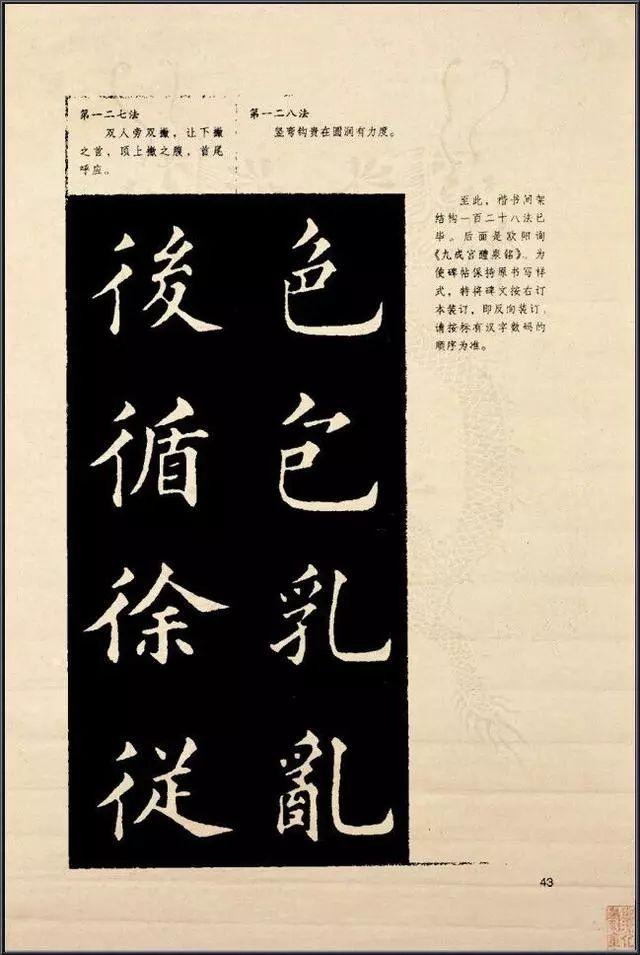 第一二七法
双人旁双撇，让下撇
之首，顶上撇之腹，首尾
呼应。
第一二八法
竖弯钩贵在圆润有力度。
至此，楷书间架
结构一百二十八法已
毕。后面是欧阳询
《九成宫醴泉铭》。为
使碑帖保持原书写样
式，特将碑文按右订
本装订，即反向装订，
请按标有汉字数码的
顺序为准。
後
循
徐
從
色
包
乳
亂
43